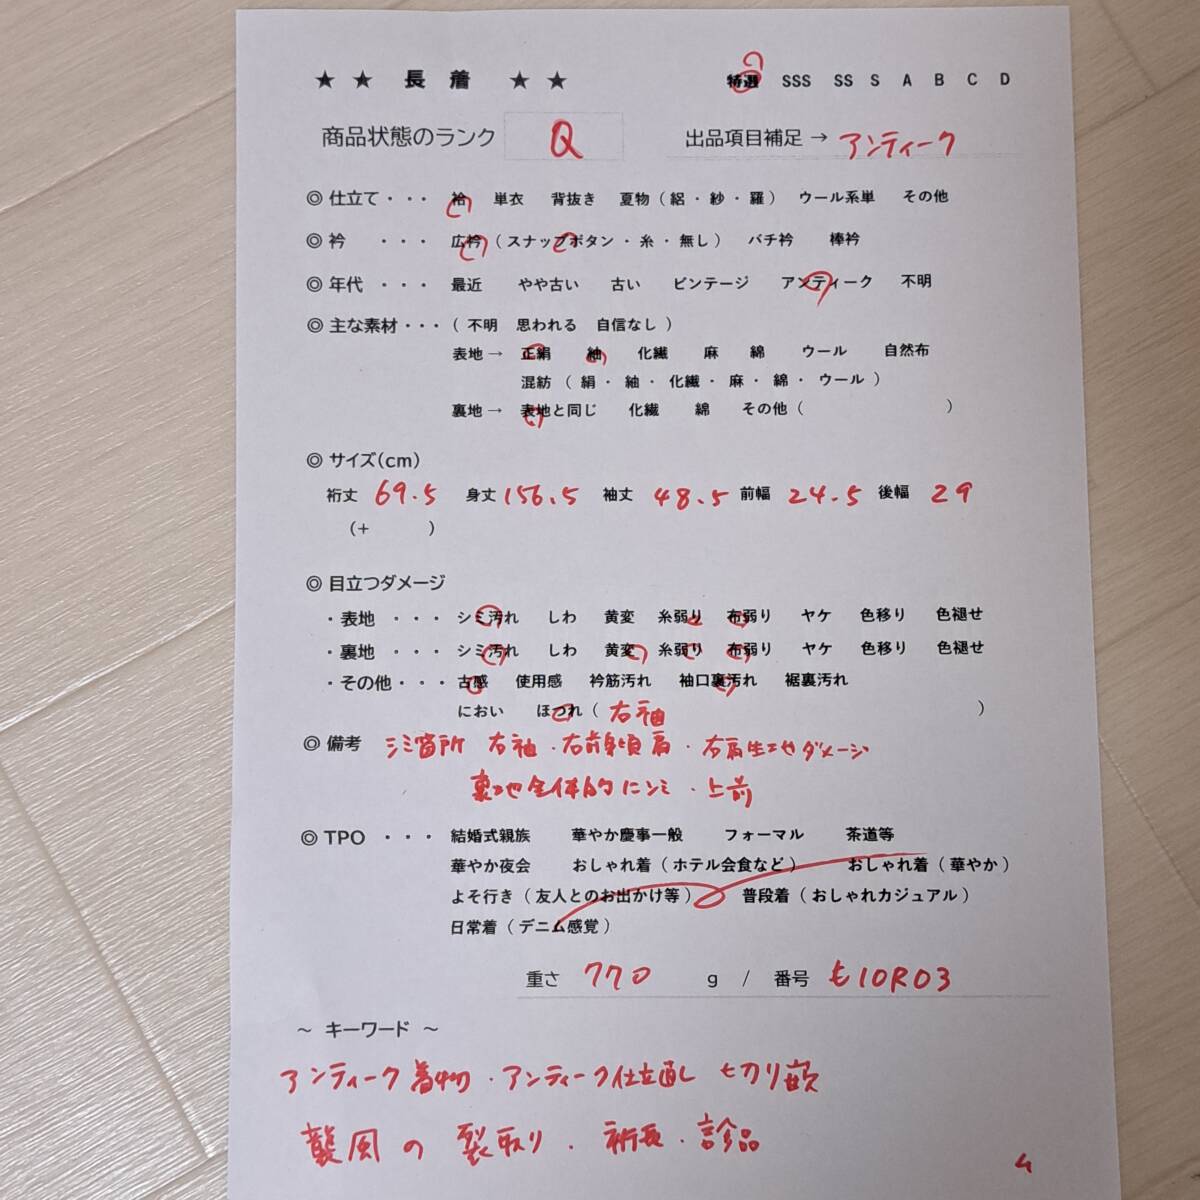 ★ ★ 長 着 ★ ★ 特選 SSS SS S A B C D
商品状態のランク Q 出品項目補足 → アンティーク
◎ 仕立て ・・・ 袷 単衣 背抜き 夏物 ( 絽 ・ 紗 ・ 羅 ) ウール系単 その他
◎ 衿 ・・・ 広衿 ( スナップボタン ・ 糸 ・ 無し ) バチ衿 棒衿
◎ 年代 ・・・ 最近 やや古い 古い ビンテージ アンティーク 不明
◎ 主な素材・・・ ( 不明 思われる 自信なし )
表地 → 正絹 紬 化繊 麻 綿 ウール 自然布
混紡 ( 絹 ・ 紬 ・ 化繊 ・ 麻 ・ 綿 ・ ウール )
裏地 → 表地と同じ 化繊 綿 その他 ( )
◎ サイズ(cm)
裄丈 69.5 身丈 156.5 袖丈 48.5 前幅 24.5 後幅 29
(+ )
◎ 目立つダメージ
・表地 ・・・ シミ汚れ しわ 黄変 糸弱り 布弱り ヤケ 色移り 色褪せ
・裏地 ・・・ シミ汚れ しわ 黄変 糸弱り 布弱り ヤケ 色移り 色褪せ
・その他・・・ 古感 使用感 衿筋汚れ 袖口裏汚れ 裾裏汚れ
におい ほつれ ( 右袖 )
◎ 備考 シミ箇所 右袖・右前身頃肩・右肩生地ダメージ
裏地全体的にシミ・上前
◎ TPO ・・・ 結婚式親族 華やか慶事一般 フォーマル 茶道等
華やか夜会 おしゃれ着 ( ホテル会食など ) おしゃれ着 ( 華やか )
よそ行き ( 友人とのお出かけ等 ) 普段着 ( おしゃれカジュアル )
日常着 ( デニム感覚 )
重さ 770 g / 番号 も10R03
～ キーワード ～
アンティーク着物・アンティーク仕立直し 切り嵌
風の 裂取り・ ・珍品